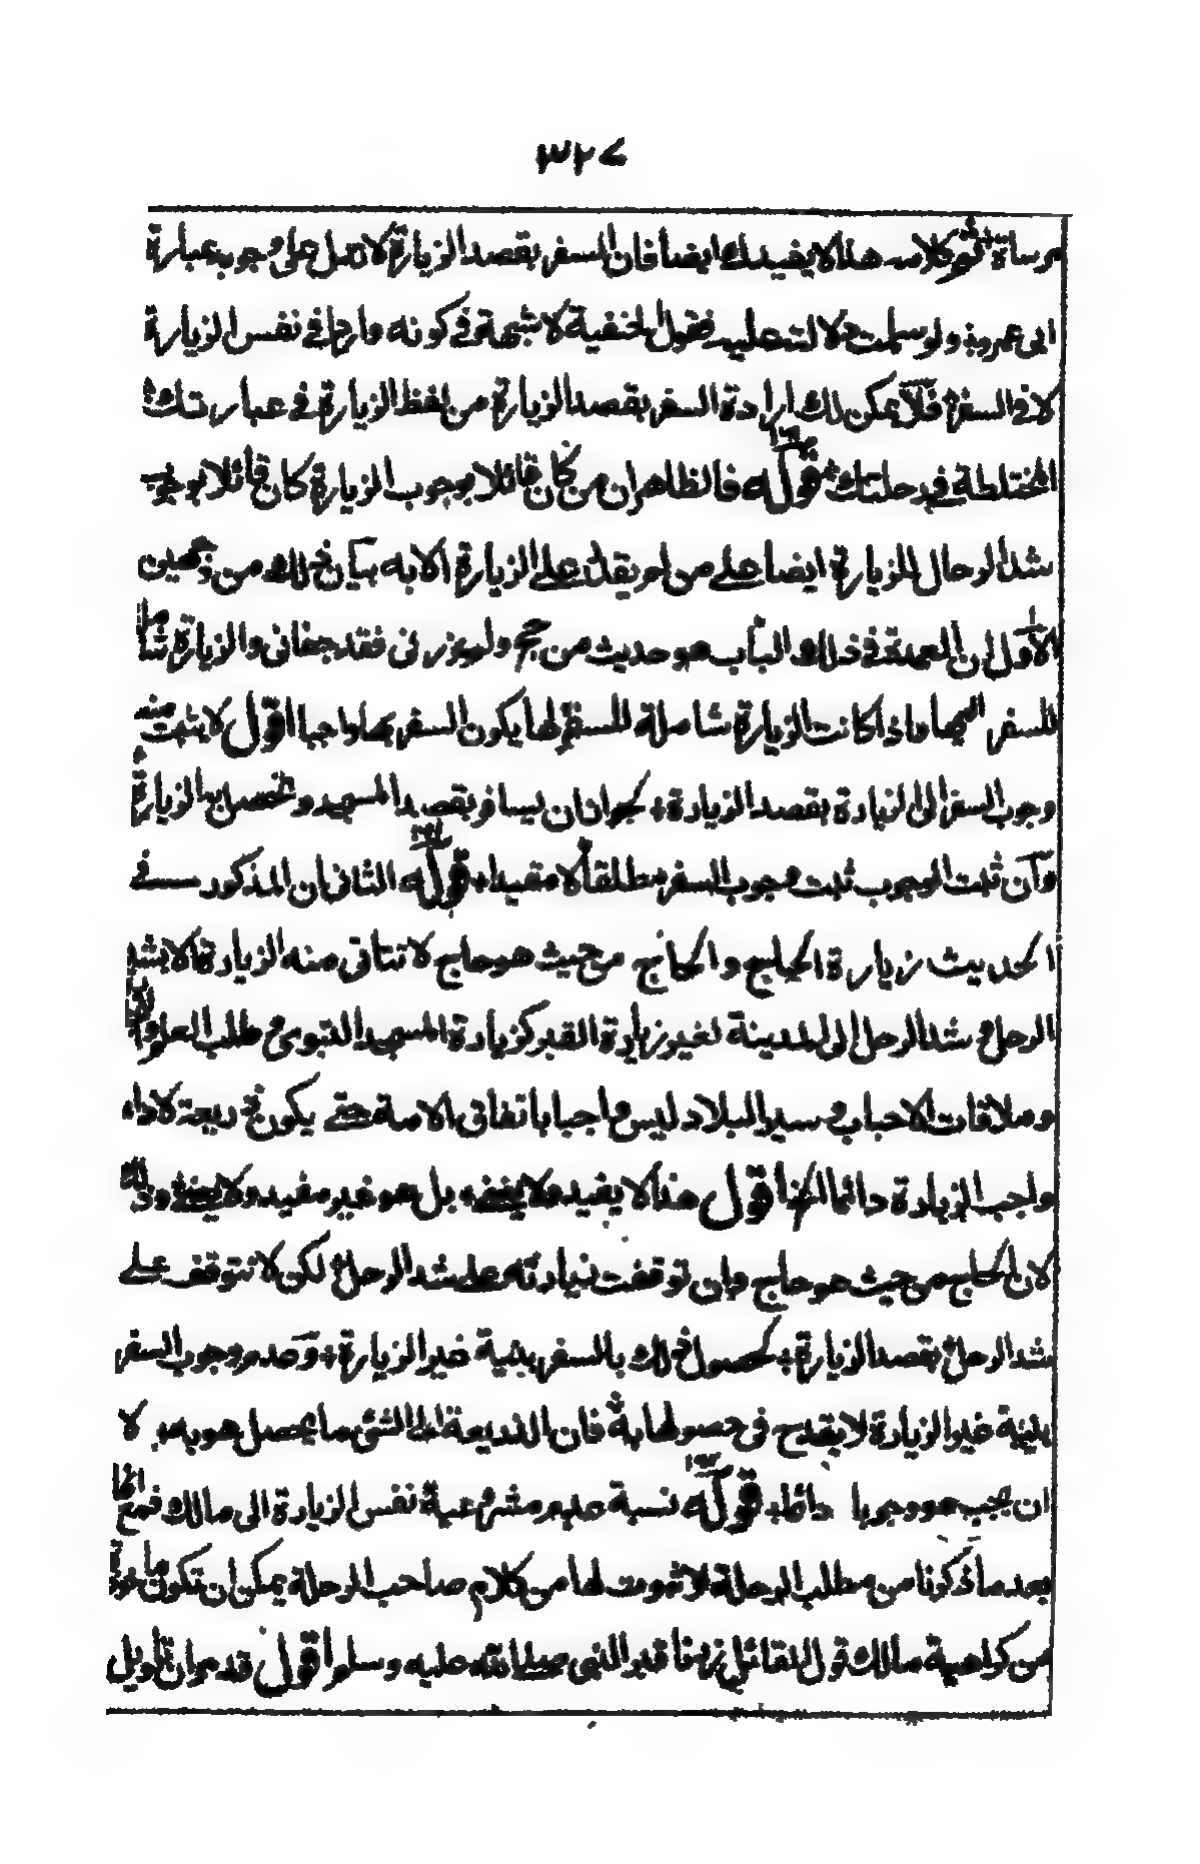 ٣٢٧
كلامه هذا لا يفيدك ايضا فان السفر بقصد الزيارة لا تدل على وجوبه عبارة
ابى عمرو ولو سلمت دلالته عليه فقول الحنفية لا شبهة في كونه واردا في نفس الزيارة
لا في السفر فلا يمكن لك ارادة السفر بقصد الزيارة من لفظ الزيارة في عبارتك
المختلطة في رحلتك قوله ١٦٠ فالظاهر ان من كان قائلا بوجوب الزيارة كان قائلا بوجوب
شد الرحال للزيارة ايضا على من لم يقدر على الزيارة الا به بيان ذلك من وجهين
الاول ان العمدة في ذلك الباب هو حديث من حج ولم يزرنى فقد جفانى والزيارة شاملة
للسفر اليها واذا كانت الزيارة شاملة للسفر لها يكون السفر بها واجبا اقول لا يثبت منه
وجوب السفر الى الزيارة بقصد الزيارة لجواز ان يسافر بقصد المسجد وتحصل به الزيارة
وان ثبت الوجوب ثبت وجوب السفر مطلقا لا مقيدا قوله ١٦١ الثانى ان المذكور في
الحديث زيارة الحاج والحاج من حيث هو حاج لا تتاتى منه الزيارة الا بشد
الرحل وشد الرحل الى المدينة لغير زيارة القبر كزيارة المسجد النبوى وطلب العلم
وملاقات الاحباب وسير البلاد ليس واجبا باتفاق الامة حتى يكون ذريعة لاداء
واجب الزيارة دائما اقول هذا لا يفيده ولا يغنيه بل هو غير مفيد ولا يغنيه وذلك
لان الحاج من حيث هو حاج وان توقفت زيارته على شد الرحل لكن لا تتوقف على
شد الرحل بقصد الزيارة لحصول ذلك بالسفر بنية غير الزيارة وعدم وجوب السفر
بنية غير الزيارة لا يقدح في حصولها به فان الذريعة الى الشئ ما يحصل هو به لا
ان يجب هو وجوبا دائما قوله ١٦٢ نسبة عدم مشروعية نفس الزيارة الى مالك فمع انها
بعد ما ذكرنا من مطلب الرحلة لا ثبوت لها من كلام صاحب الرحلة يمكن ان تكون ماخوذة
من كراهية مالك قول القائل زرنا قبر النبى صلى الله عليه وسلم اقول قد مر ان تاويل